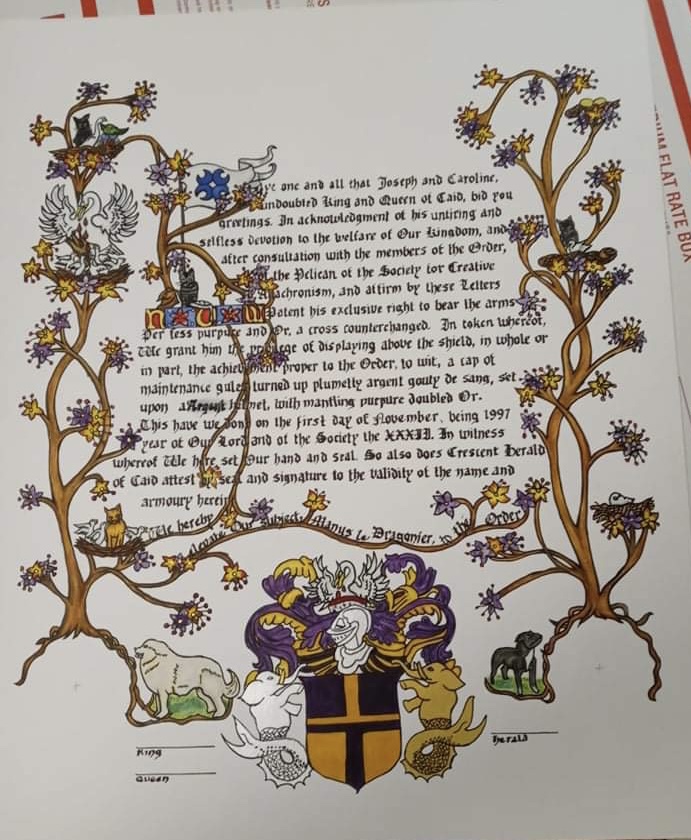 ye one and all that Joseph and Caroline,
undoubted King and Queen of Caid, bid you
greetings. In acknowledgment of his untiring and
selfless devotion to the welfare of Our Kingdom, and
after consultation with the members of the Order,
of the Pelican of the Society for Creative
Anachronism, and affirm by these Letters
Patent his exclusive right to bear the arms
Per fess purpure and Or, a cross counterchanged. In token whereof,
We grant him the privilege of displaying above the shield, in whole or
in part, the achievement proper to the Order, to wit, a cap of
maintenance gules turned up plumetty argent goutty de sang, set
upon a Argent helmet, with mantling purpure doubled Or.
This have we done on the first day of November, being 1997
year of Our Lord and of the Society the XXXII. In witness
whereof We here set Our hand and seal. So also does Crescent Herald
of Caid attest by seal and signature to the validity of the name and
armoury herein
We hereby elevate, Our subject, Manus le Dragonier, to the Order
King
Queen
Herald
UM FLAT RATE BOX